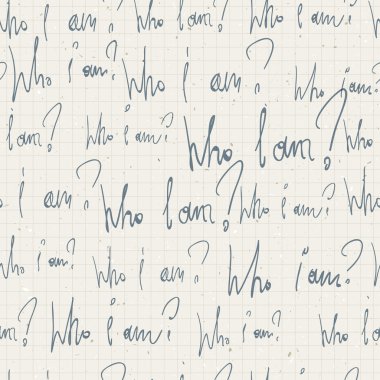 Who I am? Who I
Who i am? Who i am? Who i am?
I am? Who i am? Who I am? Who
i am? Who I am? Who i am?
Who i am? Who i am? Who i am?
am? Who I am? Who i am? Who I